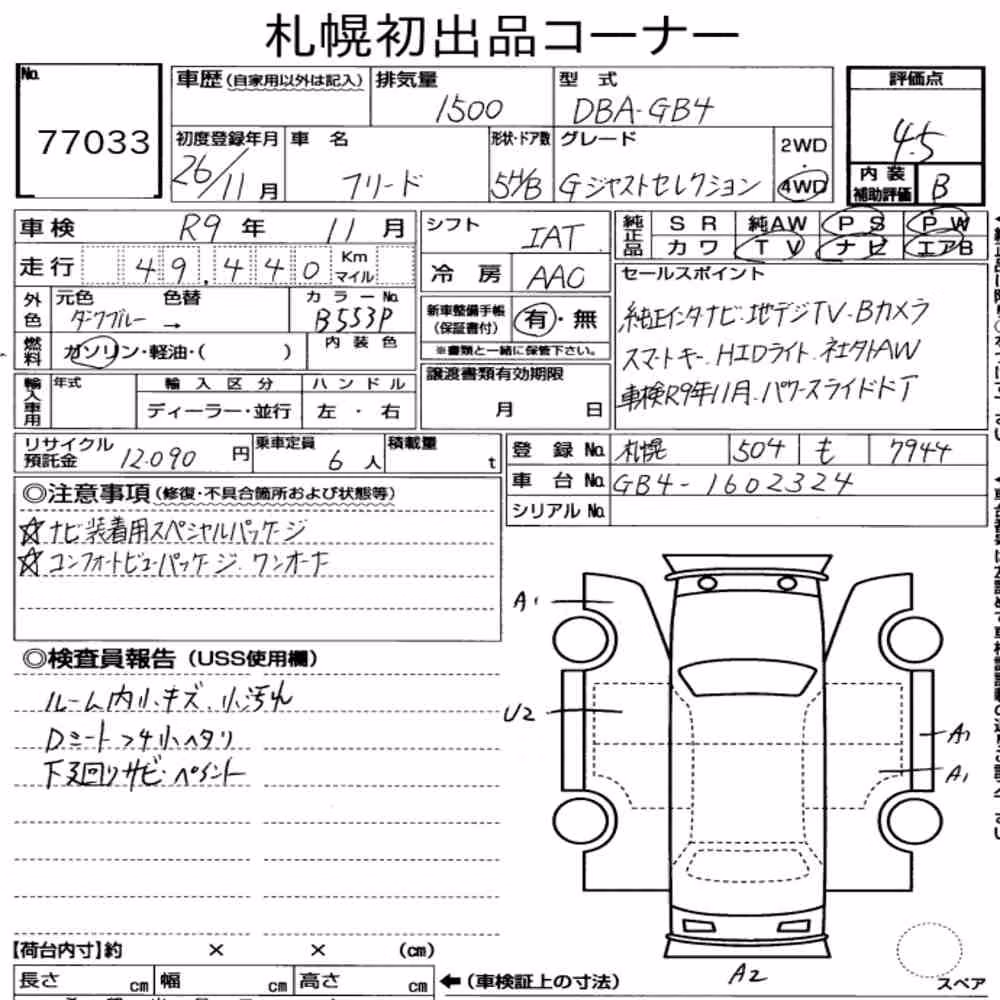 札幌初出品コーナー
No.
77033
車歴(自家用以外は記入)
排気量
1500
型式
DBA-GB4
評価点
4.5
初度登録年月
26/11月
車名
フリード
形状・ドア数
5H/B
グレード
Gジャストセレクション
2WD
4WD
内装
補助評価
B
車検 R9年 11月
走行 49,440 Km マイル
シフト
IAT
冷房
AAC
純正品
SR 純AW PS PW
カワ TV ナビ エアB
外色
元色 色替
ダークブルー →
カラーNo.
B553P
燃料
ガソリン・軽油・( )
内装色
新車整備手帳
(保証書付)
有・無
※書類と一緒に保管下さい。
セールスポイント
純正インタナビ・地デジTV・Bカメラ
スマートキー、HIDライト、社外AW
車検R9年11月、パワースライドドア
輸入車用
年式
輸入区分
ディーラー・並行
ハンドル
左・右
譲渡書類有効期限
月 日
リサイクル
預託金 12.090円
乗車定員
6人
積載量
t
登録No. 札幌 504 も 7944
車台No. GB4-1602324
シリアルNo.
◎注意事項(修復・不具合箇所および状態等)
☆ナビ装着用スペシャルパッケージ
☆コンフォートビューパッケージ、ワンオーナー
◎検査員報告(USS使用欄)
ルーム内小キズ、小汚れ
Dシートフチ小ヘタリ
下廻りサビ・ペイント
A1
U2
A1
A1
A2
スペア
【荷台内寸】約 × × (cm)
長さ cm 幅 cm 高さ cm
←(車検証上の寸法)